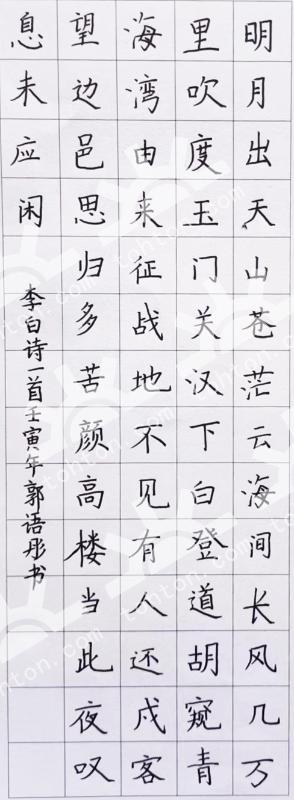 明月出天山苍茫云海间长风几万
里吹度玉门关汉下白登道胡窥青
海湾由来征战地不见有人还戍客
望边邑思归多苦颜高楼当此夜叹
息未应闲
李白诗一首壬寅年郭语彤书
tohton.com